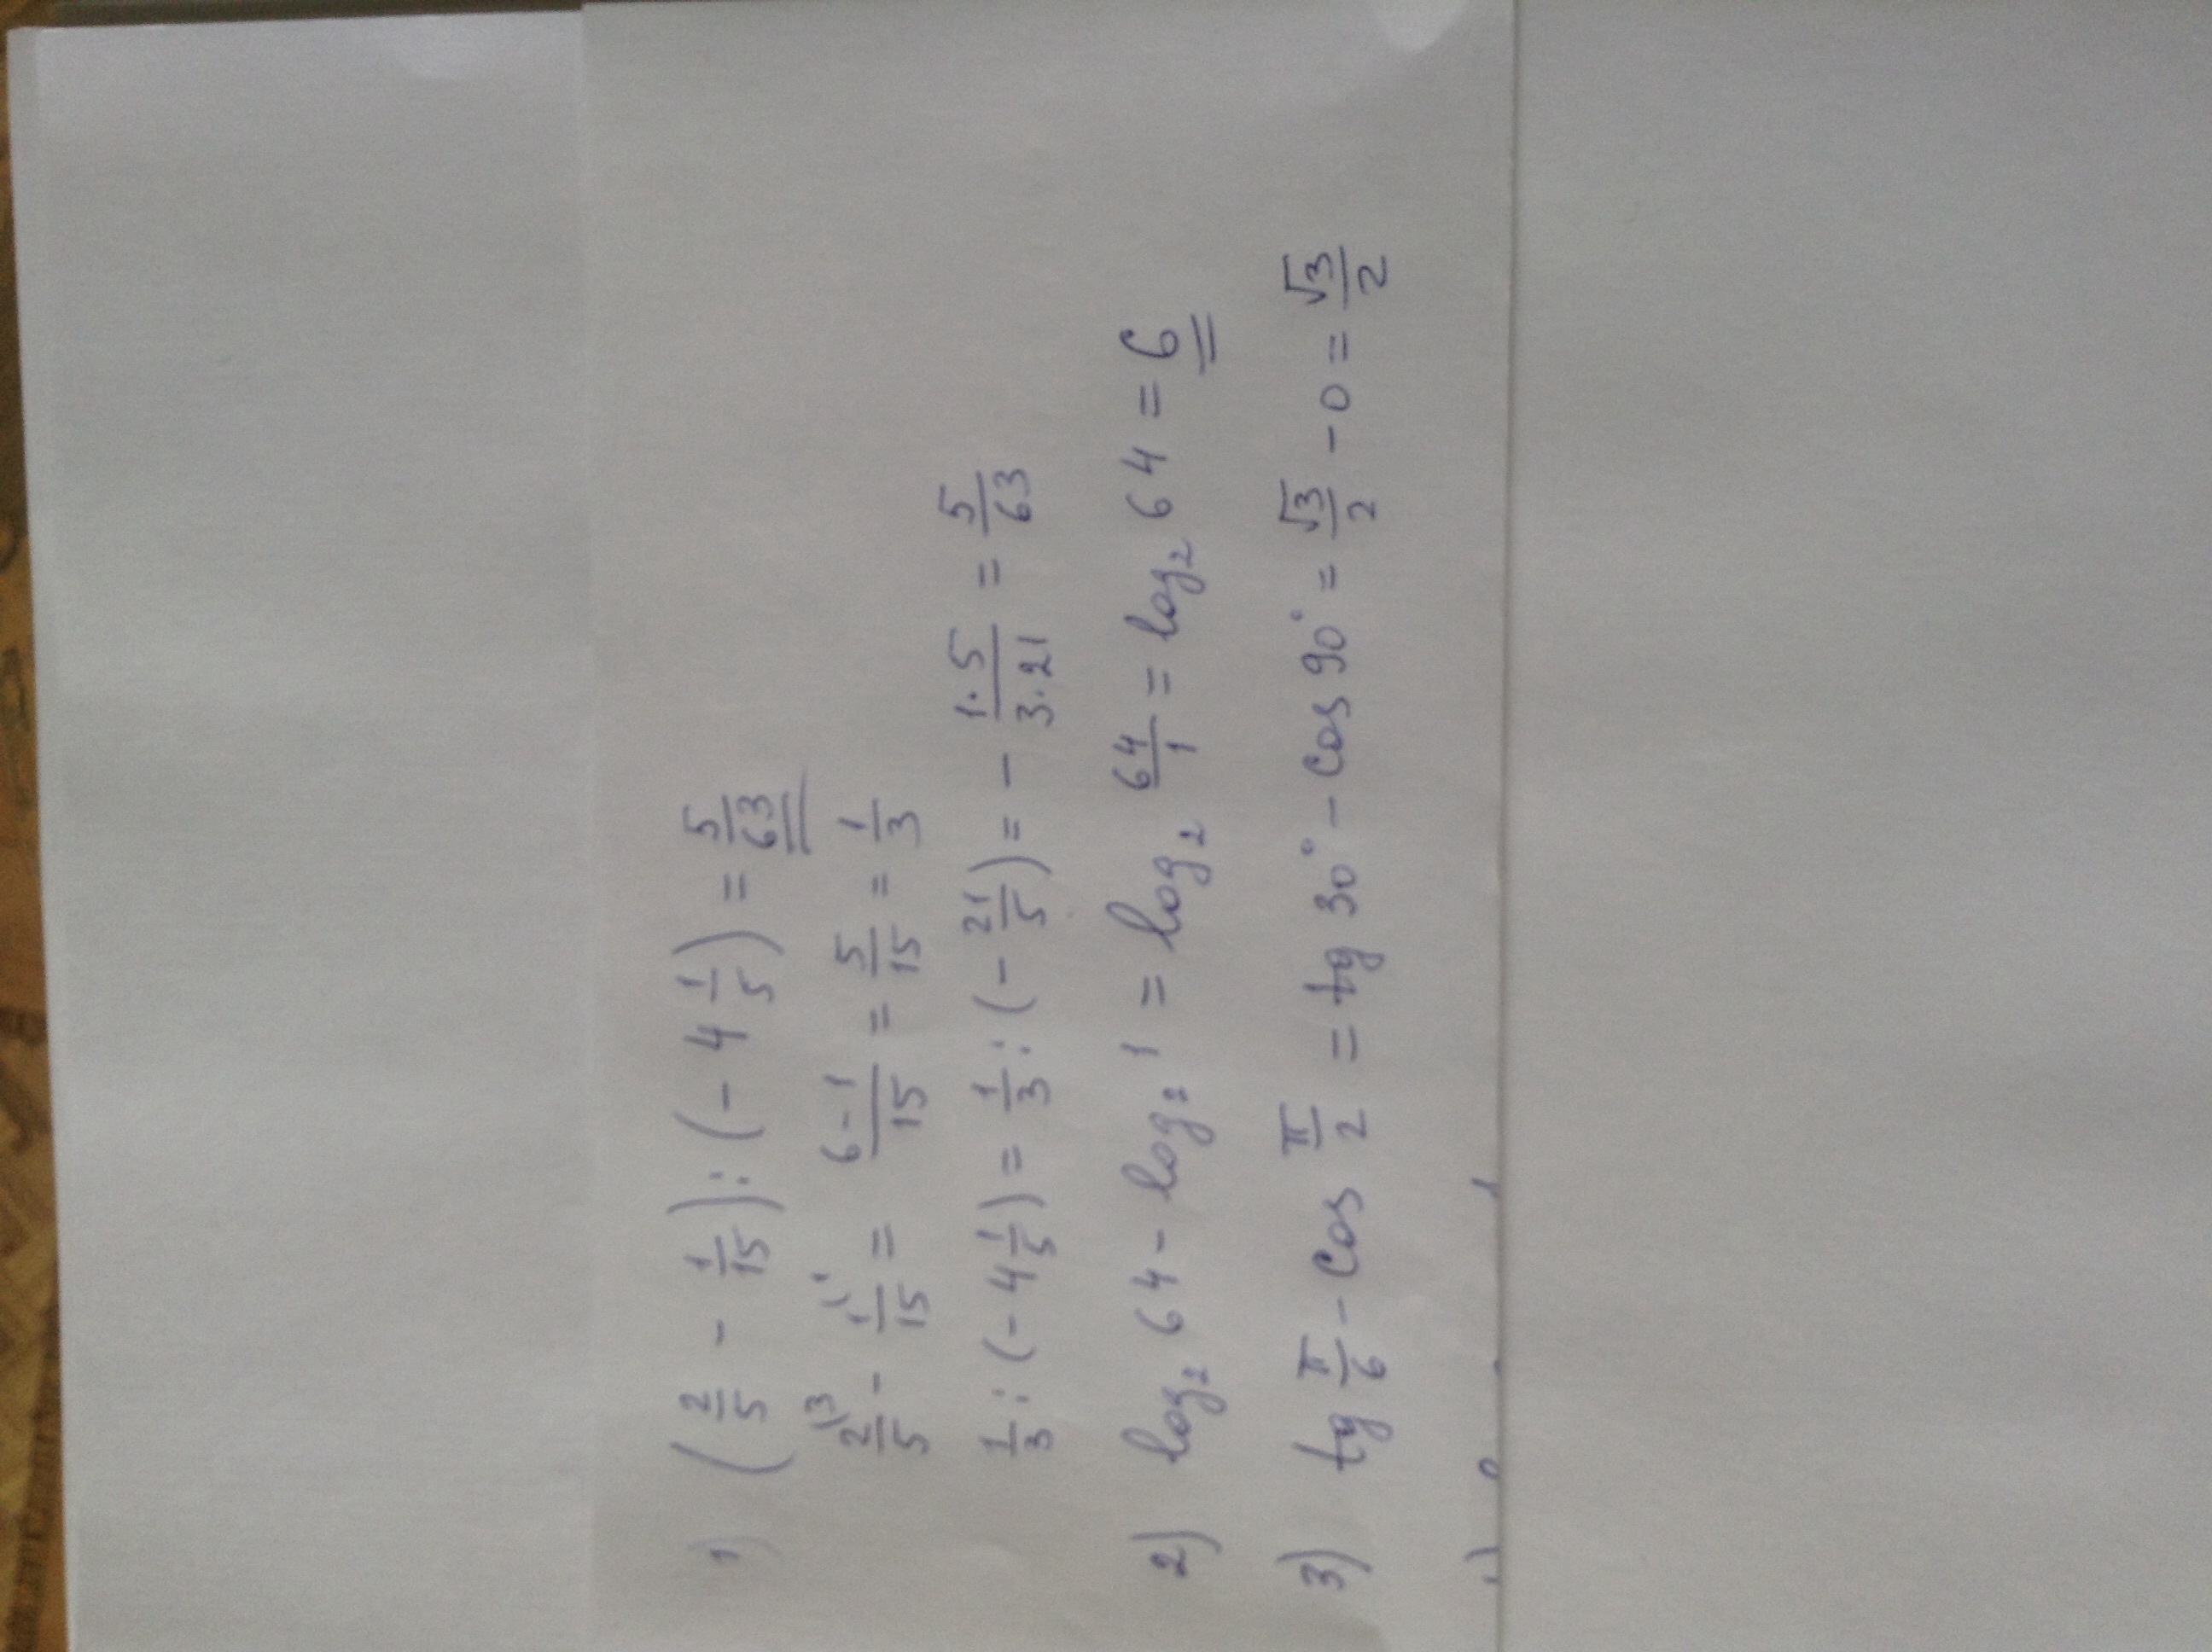 1) (2/5 - 1/15) : (- 4 1/5) = 5/63
2/5 \3 - 1/15 \1 = (6-1)/15 = 5/15 = 1/3
1/3 : (- 4 1/5) = 1/3 : (- 21/5) = - (1·5)/(3·21) = 5/63
2) log₂ 64 - log₂ 1 = log₂ 64/1 = log₂ 64 = 6
3) tg π/6 - cos π/2 = tg 30° - cos 90° = √3/2 - 0 = √3/2